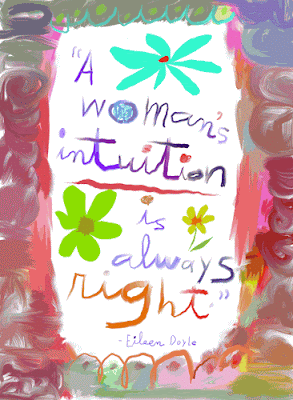 "A
woman's
intuition
is
always
right."
- Eileen Doyle